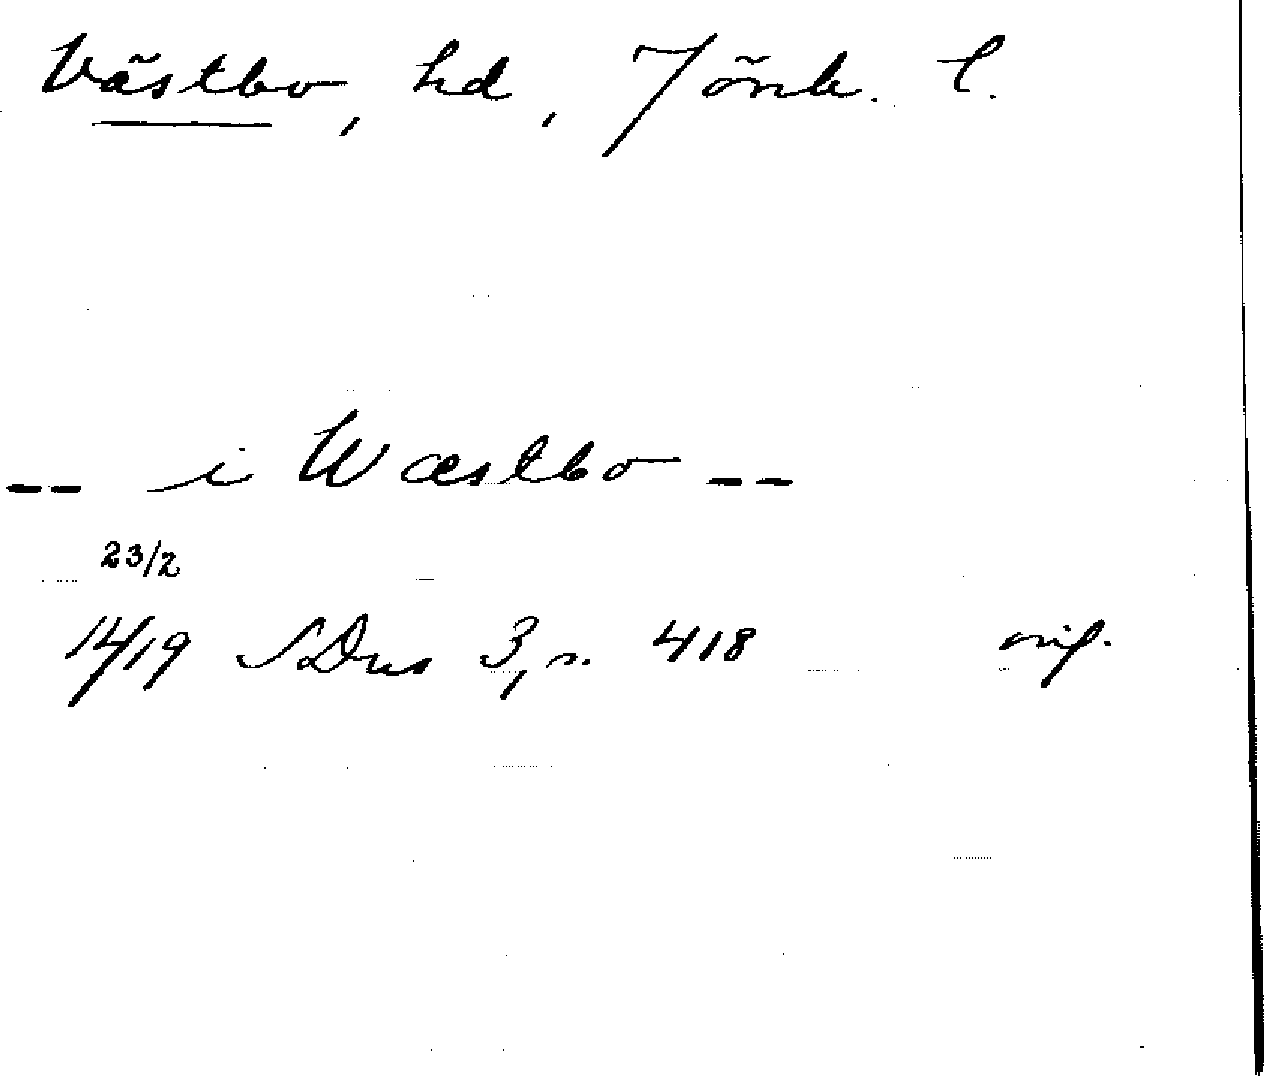 Västbo, hd, Jönk. l.
-- i Wæstbo --
23/2
1419 SDns 3, s. 418 orig.